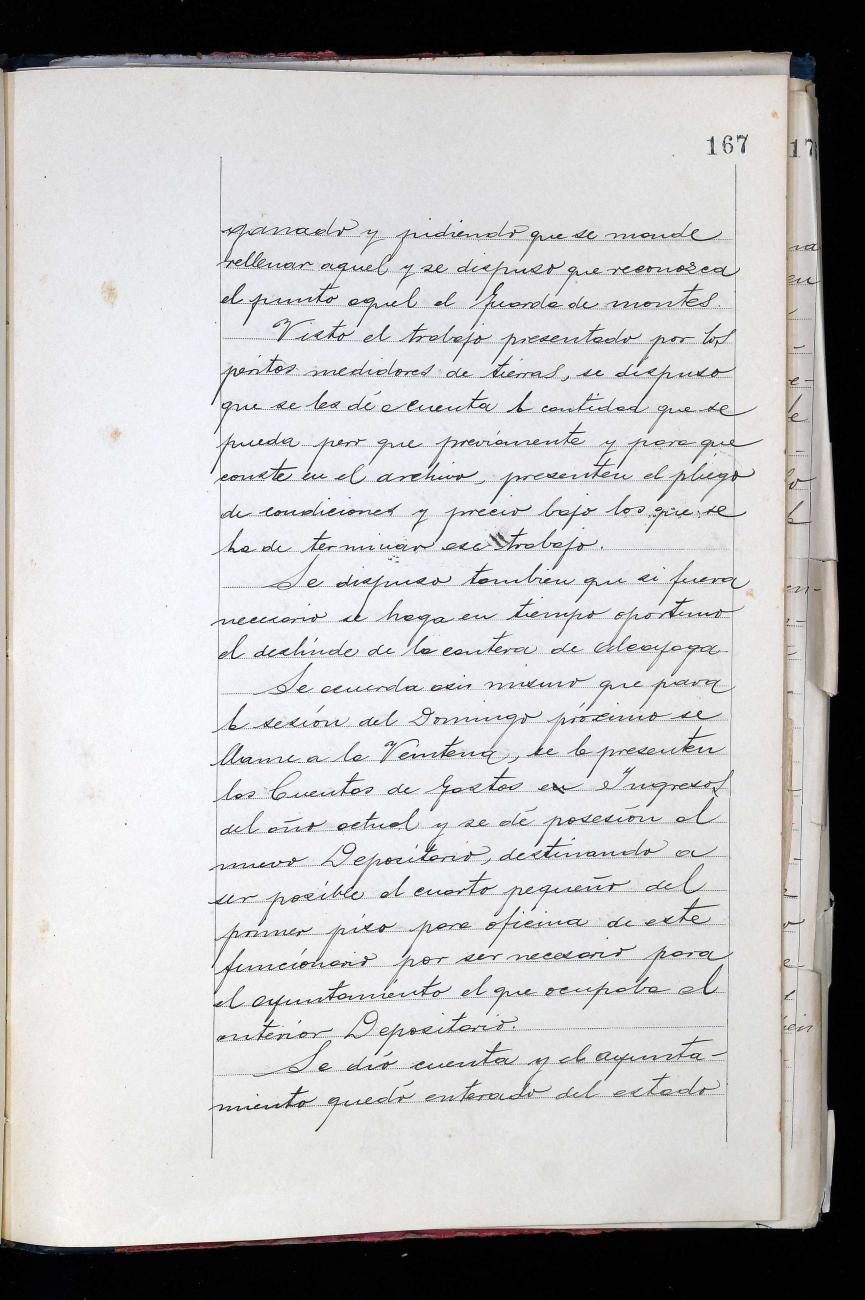 167
ganado y pidiendo que se mande
rellenar aquel y se dispuso que reconozca
el punto aquel el Guarda de montes.
Visto el trabajo presentado por los
peritos medidores de tierras, se dispuso
que se les dé a cuenta la cantidad que se
pueda pero que previamente y para que
conste en el archivo, presenten el pliego
de condiciones y precio bajo los que se
ha de terminar ese trabajo.
Se dispuso tambien que si fuera
necesario se haga en tiempo oportuno
el deslinde de la cantera de
Se acuerda asi mismo que para
la sesión del Domingo próximo se
llame a la Veintena, se le presenten
las Cuentas de Gastos e Ingresos
del año actual y se dé posesión al
nuevo Depositario, destinando a
ser posible el cuarto pequeño del
primer piso para oficina de este
funcionario por ser necesario para
el ayuntamiento el que ocupaba el
anterior Depositario.
Se dió cuenta y el ayunta-
miento quedó enterado del estado